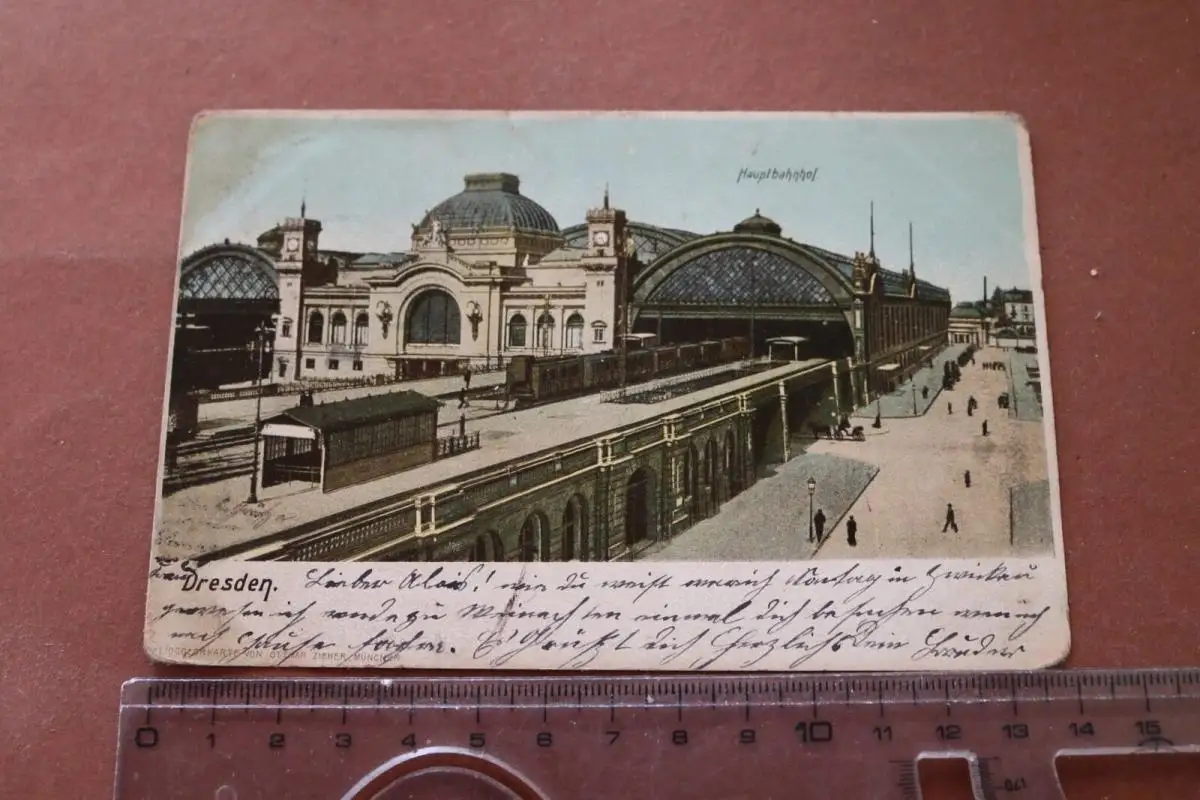 Hauptbahnhof
Dresden. Lieber Alois! wie Du weist war ich Sontag in Zwickau
gewesen ich werde zu Weinachten einmal Dich besuchen wen ich
nach Hause fahre. Es Grüßt dich Herzlichst Dein Bruder
KARTE VON OTTMAR ZIEHER, MÜNCHEN
0 1 2 3 4 5 6 7 8 9 10 11 12 13 14 15
170